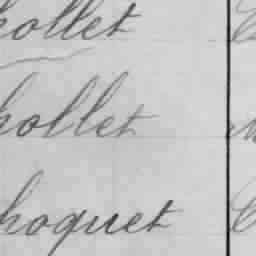 hollet
hollet
hoquet